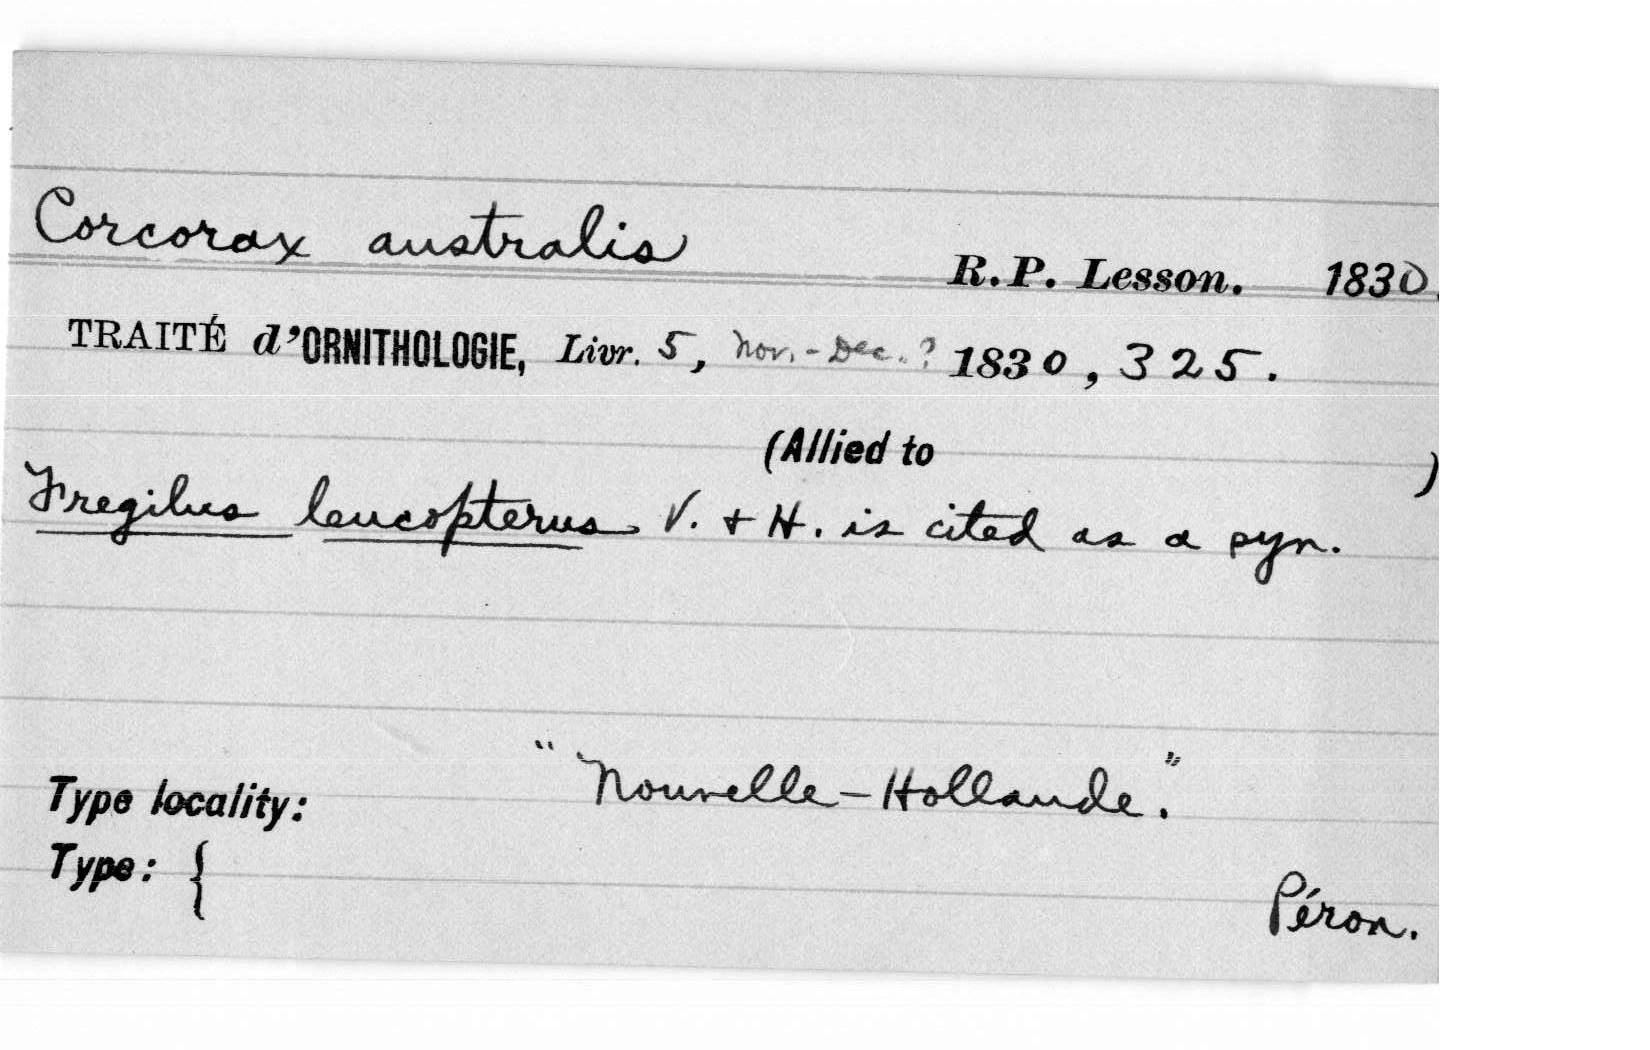 Corcorax australis
R.P. Lesson. 1830.
TRAITÉ d'ORNITHOLOGIE, Livr. 5, Nov.-Dec.? 1830, 325.
(Allied to )
Fregilus leucopterus V. + H. is cited as a syn.
Type locality: "Nouvelle-Hollande."
Type: {
Péron.